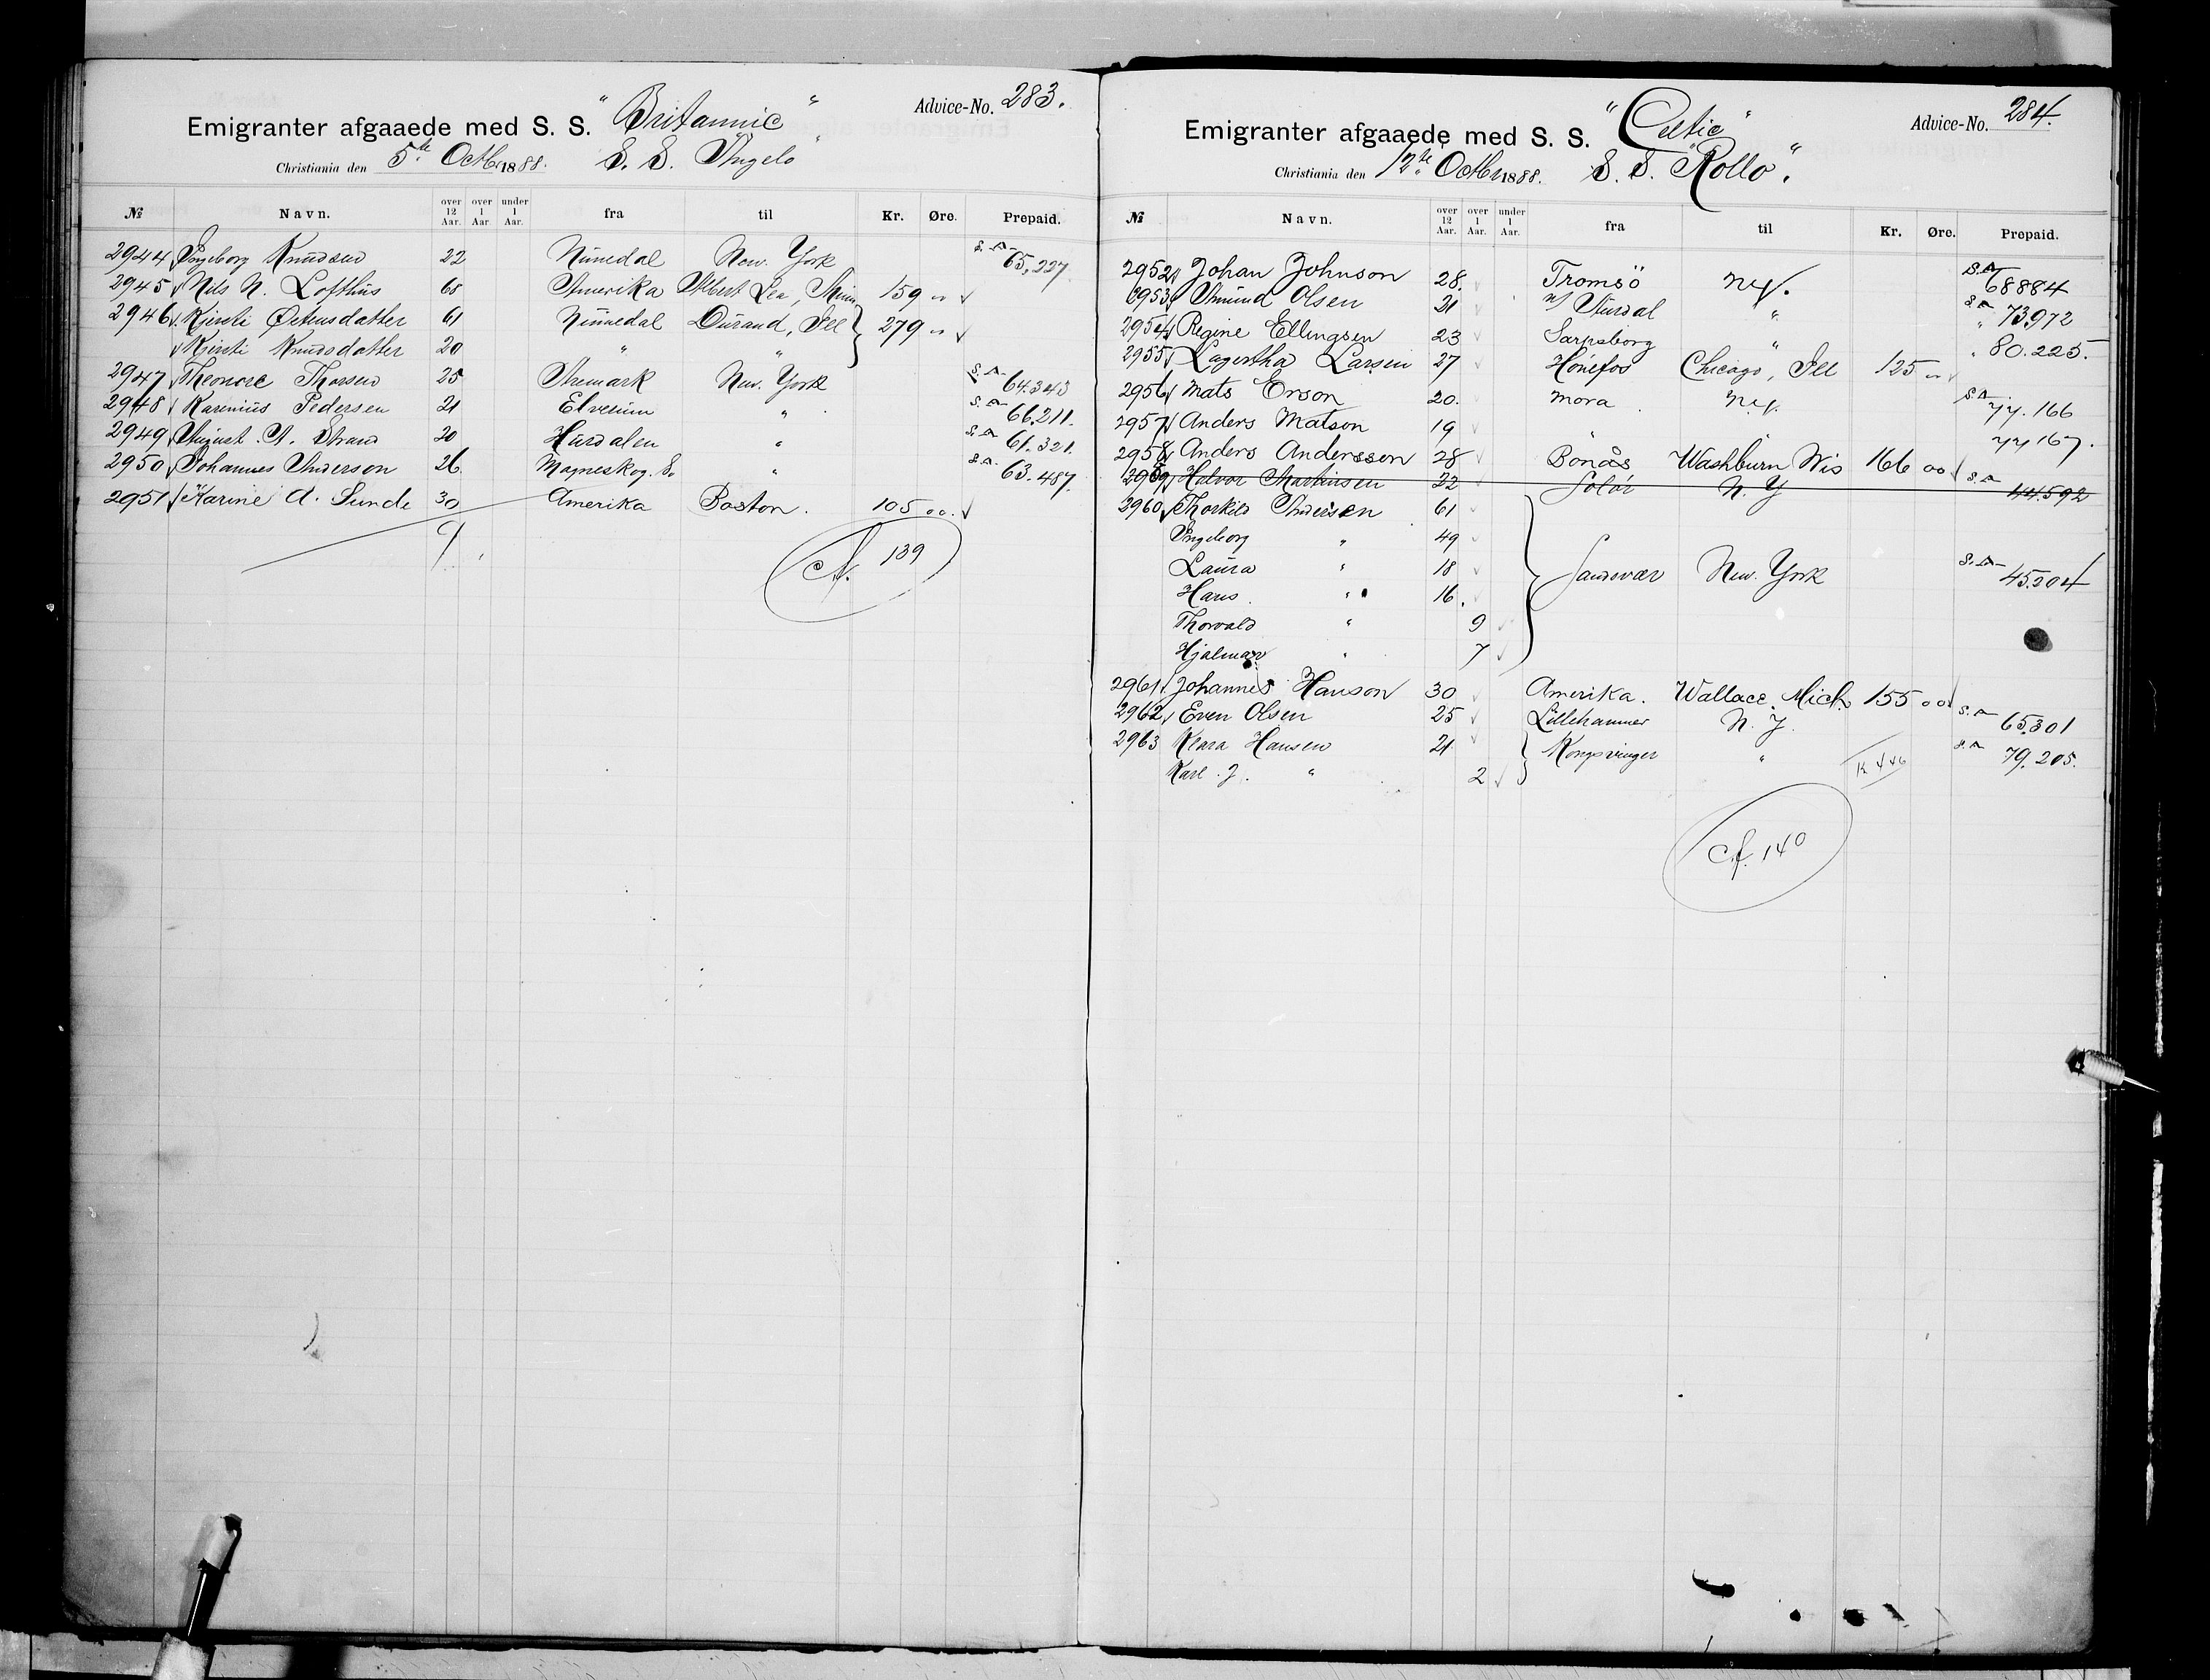 Emigranter afgaaede med S. S. "Britannic"
Advice-No. 283.
Christiania den 5te Octbr 1888. S. S. Angelo"
№ Navn. over 12 Aar. over 1 Aar. under 1 Aar. fra til Kr. Øre. Prepaid.
2944 Ingeborg Knudsen 22 Numedal New York S.A. 65,227
2945 Nels N. Lofthus 68 Amerika Albert Lea, Minn 159 "
2946 Kjersti Østensdatter 61 Numedal Durand, Ill 279 "
Kjersti Knudsdatter 20 " "
2947 Theonore Thorsen 25 Aremark New York S.A. 64.343
2948 Karenius Pedersen 21 Elverum " S.A. 66.211.
2949 August A. Strand 20 Hurdalen " S.A. 61.321.
2950 Johannes Anderson 26 Magneskog. S. " S.A. 63.487.
2951 Karine A. Sunde 30 Amerika Boston. 105 00.
9
Cf. 139
Emigranter afgaaede med S. S. "Celtic"
Advice-No. 284.
Christiania den 12te Octbr 1888. S. S. "Rollo".
№ Navn. over 12 Aar. over 1 Aar. under 1 Aar. fra til Kr. Øre. Prepaid.
2952 Johan Johnson 28. Tromsö NY. S.A. 68884
2953 Amund Olsen 21 Aurdal " S.A. 73972
2954 Regine Ellingsen 23 Sarpsborg " " 80.225.
2955 Lagertha Larsen 27 Hönefos Chicago, Ill 125 "
2956 Mats Erson 20. Mora NY. S.A. 77.166
2957 Anders Matson 19 " 77167.
2958 Anders Andersson 28 Bonås Washburn Wis 166 00
2959 Halvor Martinsen 22 Solör N.Y S.A. 44.592
2960 Thorkild Andersen 61
Ingeborg " 49
Laura " 18 Sandsvær New York S.A. 45.204
Hans " 16.
Thorvald " 9
Hjalmar " 7
2961 Johannes Hanson 30 Amerika. Wallace, Mich 155 00
2962 Even Olsen 25 Lillehammer N.Y. S.A. 65.301
2963 Klara Hansen 21 Kongsvinger " S.A. 79.205.
Karl J. " 2
K 446
Cf. 140